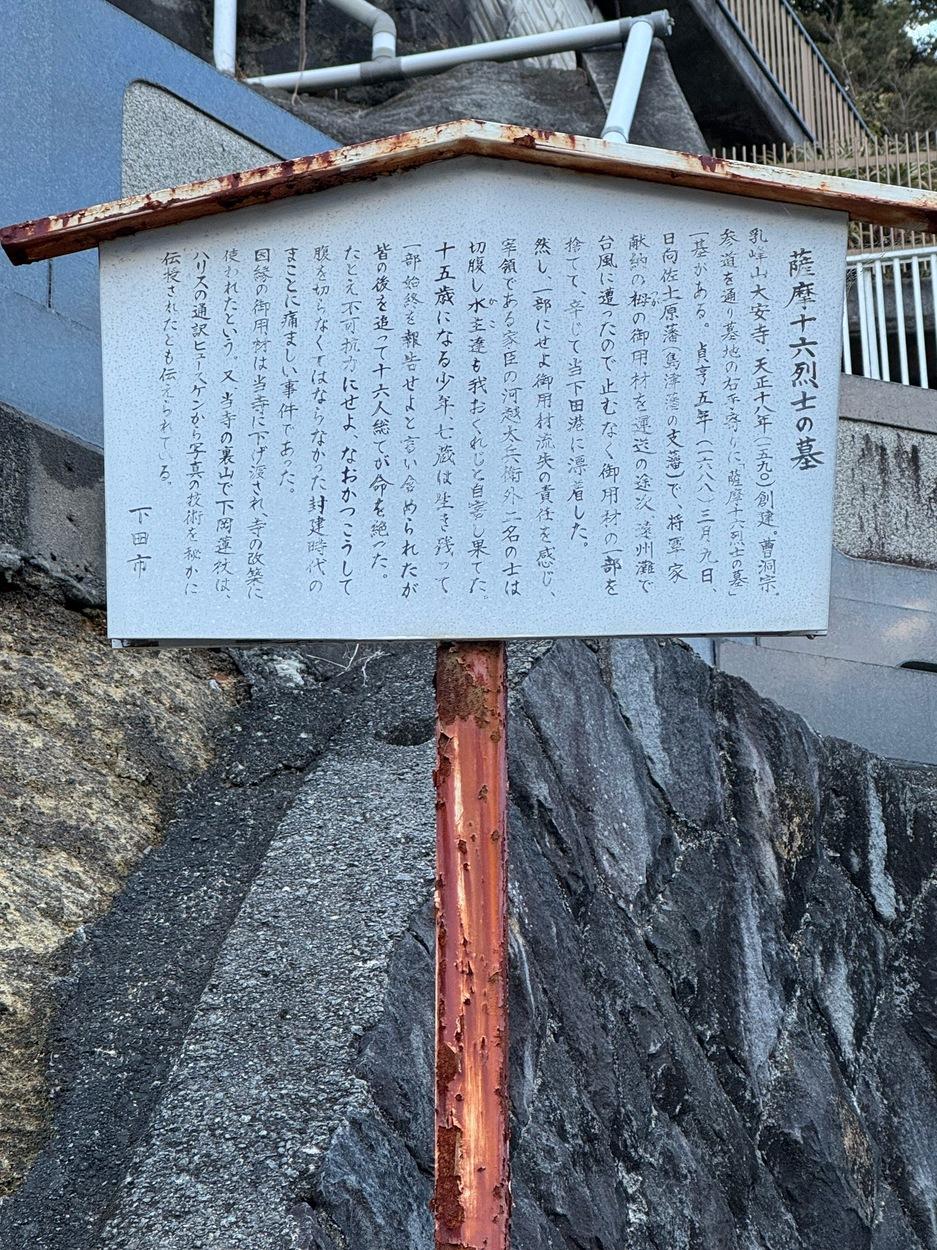 薩摩十六烈士の墓
乳峰山大安寺 天正十八年(一五九〇)創建。曹洞宗。
参道を通り墓地の右手寄りに「薩摩十六烈士の墓」
一基がある。貞享五年(一六八八)三月九日、
日向佐土原藩(島津藩の支藩)で、将軍家
献納の栂の御用材を運送の途次、遠州灘で
台風に遭ったので止むなく御用材の一部を
捨てて、辛じて当下田港に漂着した。
然し、一部にせよ御用材流失の責任を感じ、
宰領である家臣の河越太兵衛外二名の士は
切腹し水主達も我おくれじと自害し果てた。
十五歳になる少年七蔵は生き残って
一部始終を報告せよと言い含められたが
皆の後を追って十六人総てが命を絶った。
たとえ不可抗力にせよ、なおかつこうして
腹を切らなくてはならなかった封建時代の
まことに痛ましい事件であった。
因縁の御用材は当寺に下げ渡され、寺の改築に
使われたという。又、当寺の裏山で下岡蓮杖は、
ハリスの通訳ヒュースケンから写真の技術を秘かに
伝授されたとも伝えられている。
下田市